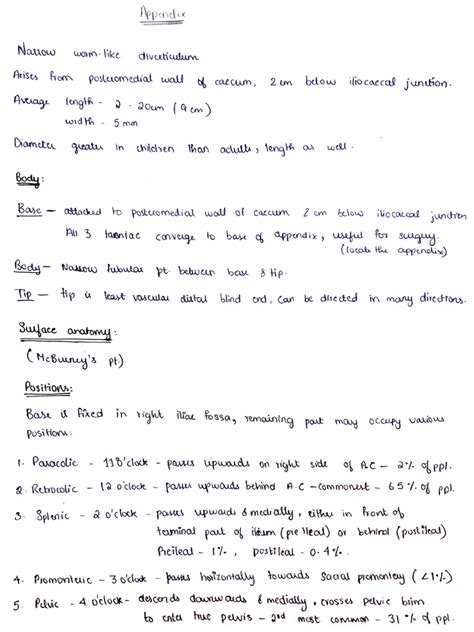 Appendix
Narrow worm-like diverticulum
Arises from posteromedial wall of caecum, 2 cm below iliocaecal junction.
Average length - 2 - 20cm (9cm)
width - 5 mm
Diameter greater in children than adults, length as well.
Body:
Base — attached to posteromedial wall of caecum 2 cm below iliocaecal junction
All 3 taeniae converge to base of appendix, useful for surgery.
(locate the appendix)
Body — Narrow tubular pt. between base & tip.
Tip — tip is least vascular distal blind end, can be directed in many directions.
Surface anatomy:
(McBurney's pt)
Positions:
Base is fixed in right iliac fossa, remaining part may occupy various
positions:
1. Paracolic - 11 o'clock - passes upwards on right side of A.C - 2% of ppl.
2. Retrocolic - 12 o'clock - passes upwards behind A.C - commonest - 65% of ppl.
3. Splenic - 2 o'clock - passes upwards & medially, either in front of
terminal part of ileum (preileal) or behind (postileal)
Preileal - 1%, postileal - 0.4%.
4. Promonteric - 3 o'clock - passes horizontally towards sacral promontory (<1%)
5. Pelvic - 4 o'clock - descends downwards & medially, crosses pelvic brim
to enter true pelvis - 2nd most common - 31% of ppl.